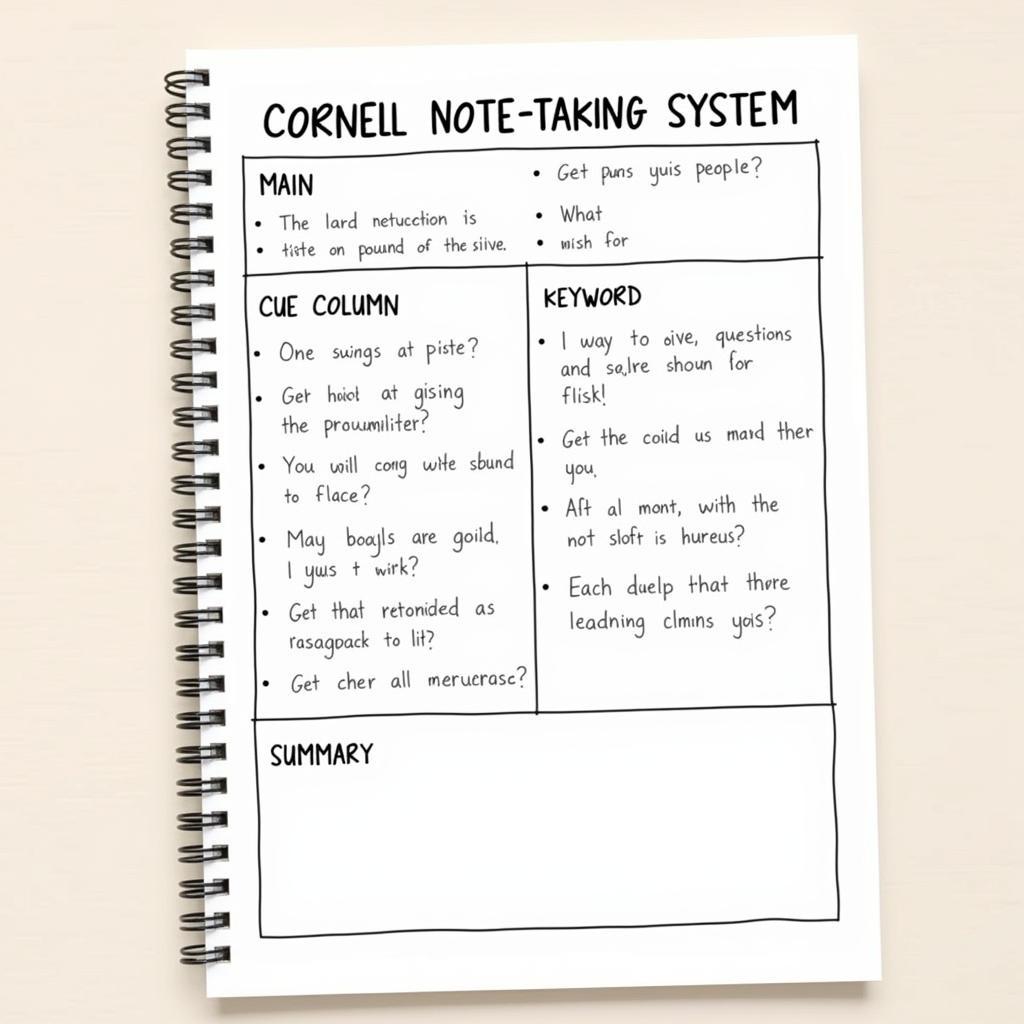 CORNELL NOTE-TAKING SYSTEM
MAIN
• The lard netucction is
• tiste on pound of the siive.
• Get puns yuis people?
• What
• wish for
CUE COLUMN
• One suings at piste?
• Get hoiot at gising
the prouumiliter?
• You will cong wite sbund
to flace?
• May boajls are goild.
I yuus t wirk?
• Get that retonided as
rasagpack to lit?
• Get cher all merucrasc?
KEYWORD
• I way to oive, questions
and salre shoun for
flisk!
• Get the coild us mard ther
you.
• Aft al mont, with the
not sloft is hureus?
• Each duelp that thore
leadning clmins yois?
SUMMARY